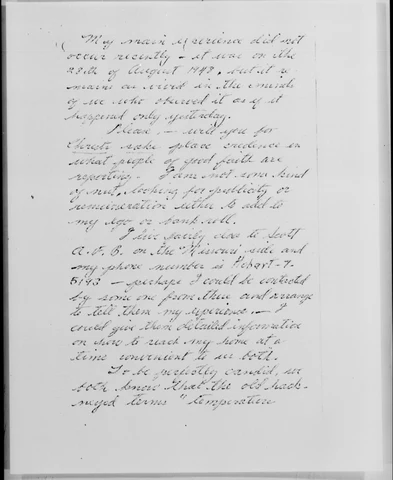 ( My main experience did not
occur recently - it was on the
28th of August 1948, but it re-
mains as vivid in the minds
of us who observed it as if it
happened only yesterday.
Please, - will you for
Christs sake place credence in
what people of good faith are
reporting. I am not some kind
of nut, looking for publicity or
remuneration either to add to
my ego or bank roll.
I live fairly close to Scott
A.F.B. on the "Missouri side and
my phone number is Hobart-7-
5193 - perhaps I could be contacted
by some one from there and arrange
to tell them my experience. - I
could give them detailed information
on how to reach my home at a
time convenient to us both.
To be perfectly candid, we
both know that the old hack-
neyed terms "temperature